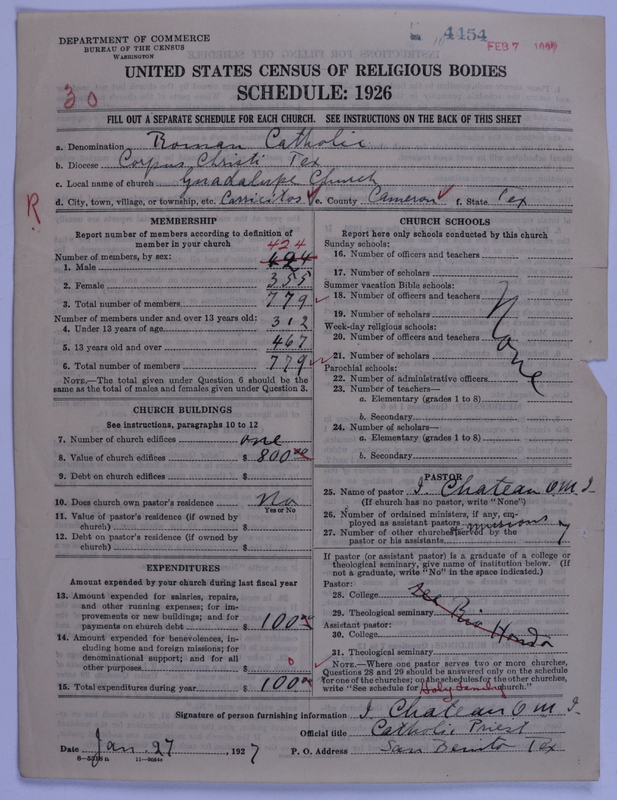 DEPARTMENT OF COMMERCE
BUREAU OF THE CENSUS
WASHINGTON
4454
FEB 7
UNITED STATES CENSUS OF RELIGIOUS BODIES
SCHEDULE: 1926
30
FILL OUT A SEPARATE SCHEDULE FOR EACH CHURCH. SEE INSTRUCTIONS ON THE BACK OF THIS SHEET
a. Denomination Roman Catholic
b. Diocese Corpus Christi Tex
c. Local name of church Guadalupe Church
R
d. City, town, village, or township, etc. Carricitos e. County Cameron f. State Tex
MEMBERSHIP
Report number of members according to definition of
member in your church
Number of members, by sex: 424
1. Male 424
2. Female 355
3. Total number of members 779
Number of members under and over 13 years old:
4. Under 13 years of age 312
5. 13 years old and over 467
6. Total number of members 779
NOTE.—The total given under Question 6 should be the
same as the total of males and females given under Question 3.
CHURCH BUILDINGS
See instructions, paragraphs 10 to 12
7. Number of church edifices one
8. Value of church edifices $ 800.00
9. Debt on church edifices $
10. Does church own pastor's residence No
Yes or No
11. Value of pastor's residence (if owned by
church) $
12. Debt on pastor's residence (if owned by
church) $
EXPENDITURES
Amount expended by your church during last fiscal year
13. Amount expended for salaries, repairs,
and other running expenses; for im-
provements or new buildings; and for
payments on church debt $ 100.00
14. Amount expended for benevolences, in-
cluding home and foreign missions; for
denominational support; and for all
other purposes $ 0
15. Total expenditures during year $ 100.00
CHURCH SCHOOLS
Report here only schools conducted by this church
Sunday schools:
16. Number of officers and teachers
17. Number of scholars
Summer vacation Bible schools:
18. Number of officers and teachers
19. Number of scholars
Week-day religious schools:
20. Number of officers and teachers
21. Number of scholars
None
Parochial schools:
22. Number of administrative officers
23. Number of teachers—
a. Elementary (grades 1 to 8)
b. Secondary
24. Number of scholars—
a. Elementary (grades 1 to 8)
b. Secondary
PASTOR
25. Name of pastor I Chateau OMI
(If church has no pastor, write "None")
26. Number of ordained ministers, if any, em-
ployed as assistant pastors
27. Number of other churches served by the missions
pastor or his assistants 7
If pastor (or assistant pastor) is a graduate of a college or
theological seminary, give name of institution below. (If
not a graduate, write "No" in the space indicated.)
Pastor:
28. College
29. Theological seminary
see Rio Hondo
Assistant pastor:
30. College
31. Theological seminary
NOTE.—Where one pastor serves two or more churches,
Questions 28 and 29 should be answered only on the schedule
for one of the churches; on the schedules for the other churches,
write "See schedule for Holy Family church."
Signature of person furnishing information I Chateau OMI
Official title Catholic Priest
Date Jan. 27, 1927 P. O. Address San Benito Tex